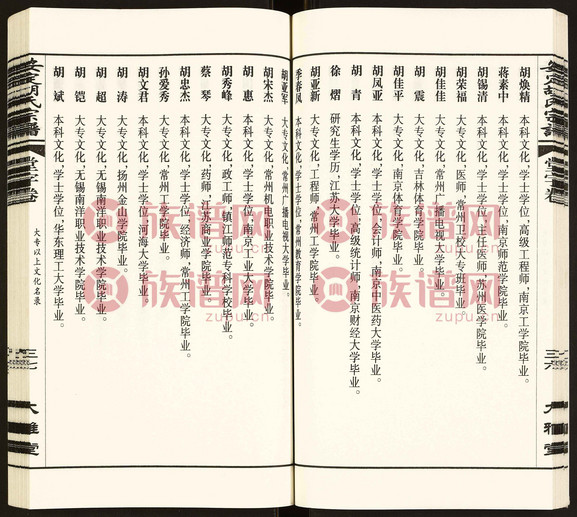 胡焕精 本科文化,学士学位,高级工程师,南京工学院毕业。
蒋素中 本科文化,学士学位,南京师范学院毕业。
胡锡清 本科文化,学士学位,主任医师,苏州医学院毕业。
胡荣福 大专文化,医师,常州卫校大专班毕业。
胡佳佳 大专文化,常州广播电视大学毕业。
胡震 大专文化,吉林体育学院毕业。
胡佳平 大专文化,南京体育学院毕业。
胡凤亚 本科文化,学士学位,会计师,南京中医药大学毕业。
胡青 本科文化,学士学位,高级统计师,南京财经大学毕业。
徐熠 研究生学历,江苏大学毕业。
胡亚新 大专文化,工程师,常州工学院毕业。
季春凤 本科文化,学士学位,常州教育学院毕业。
胡亚军 大专文化,常州广播电视大学毕业。
胡宋杰 大专文化,常州机电职业技术学院毕业。
胡惠 本科文化,学士学位,南京工业大学毕业。
胡秀峰 大专文化,政工师,镇江师范专科学校毕业。
蔡琴 大专文化,药师,江苏商业学院毕业。
胡忠杰 本科文化,学士学位,经济师,常州工学院毕业。
孙爱秀 大专文化,常州工学院毕业。
胡文君 本科文化,学士学位,河海大学毕业。
胡涛 大专文化,扬州金山学院毕业。
胡超 大专文化,无锡南洋职业技术学院毕业。
胡铠 大专文化,无锡南洋职业技术学院毕业。
胡斌 本科文化,学士学位,华东理工大学毕业。
大专以上文化名录
大雅堂
族谱网
zupu.cn